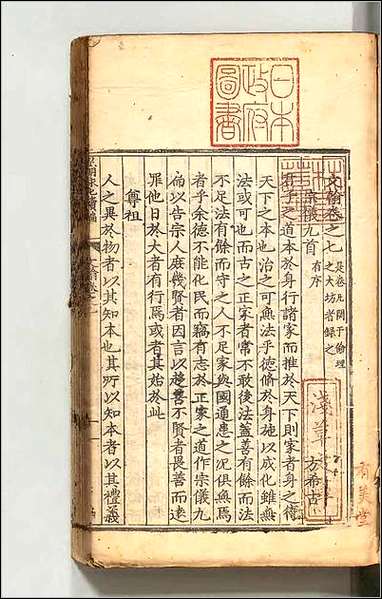 日本
政府
圖書
文倫卷之七 是卷凡關于倫理
之大坊者録之
宗儀九首 有序
方希古
淺草
君子之道本於身行諸家而推於天下則家者身之
天下之本也治之可無法乎德脩於身施以成化雖無
法或可也而古之正家者常不敢後法蓋善有餘而法
不足法有餘而守之人不足家與國通患之况俱無焉
者乎余德不能化民而竊有志於正家之道作宗儀九
篇以告宗人庶幾賢者因言以趨善不賢者畏善而遠
罪他日於大者有行焉或者其始於此
尊祖
人之異於物者以其知本也其所以知本者以其禮義